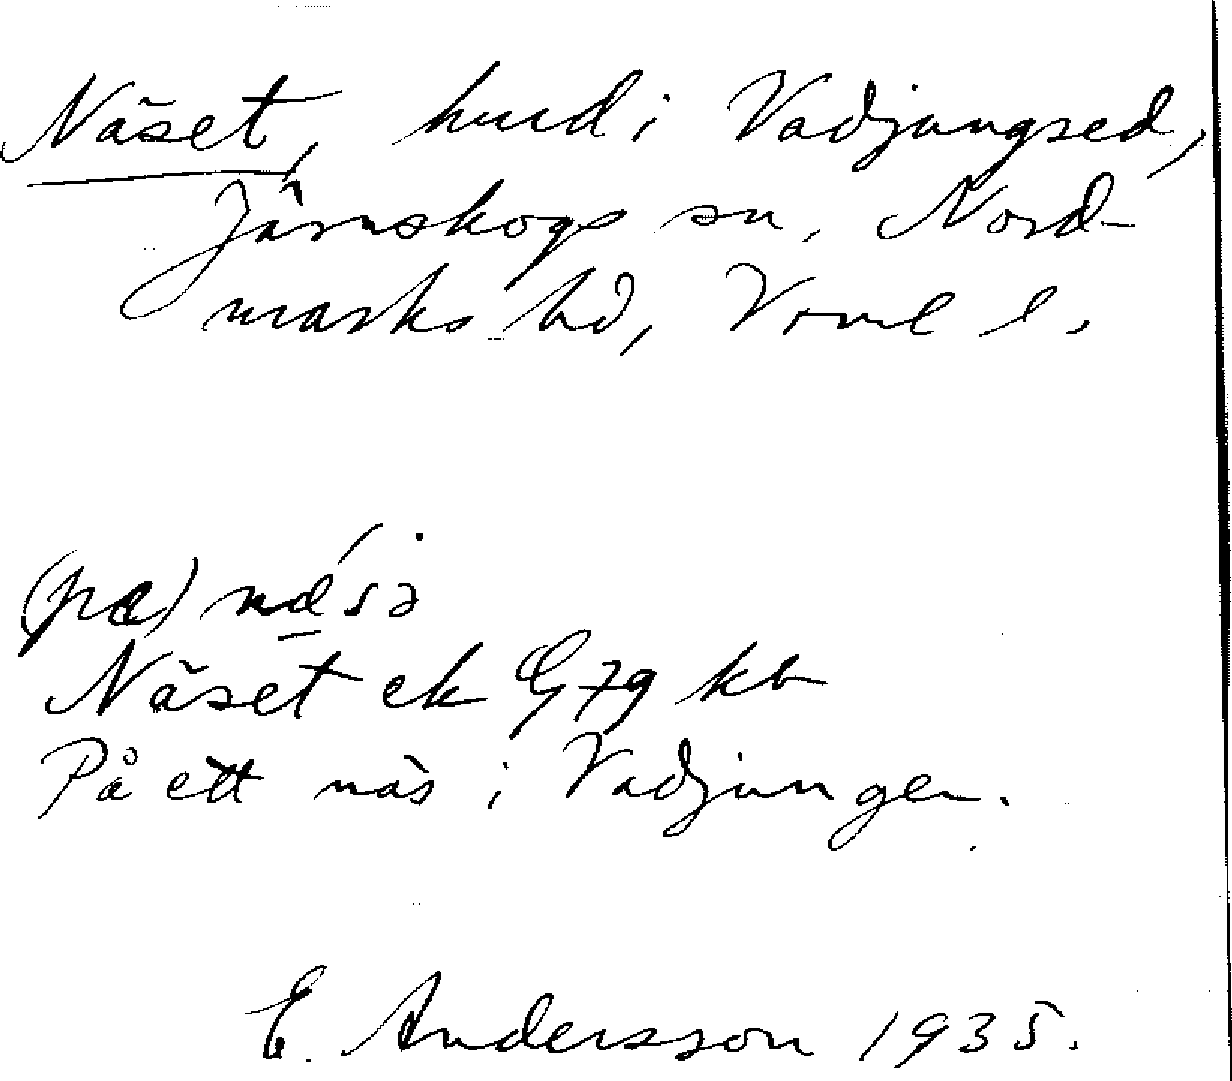 Näset, hmd i Vadjungsed,
Järnskogs sn, Nord-
marks hd, Vrml l.
(pæ) næ´sə
Näset ek G79 kb
På ett näs i Vadjungen.
E. Andersson 1935.